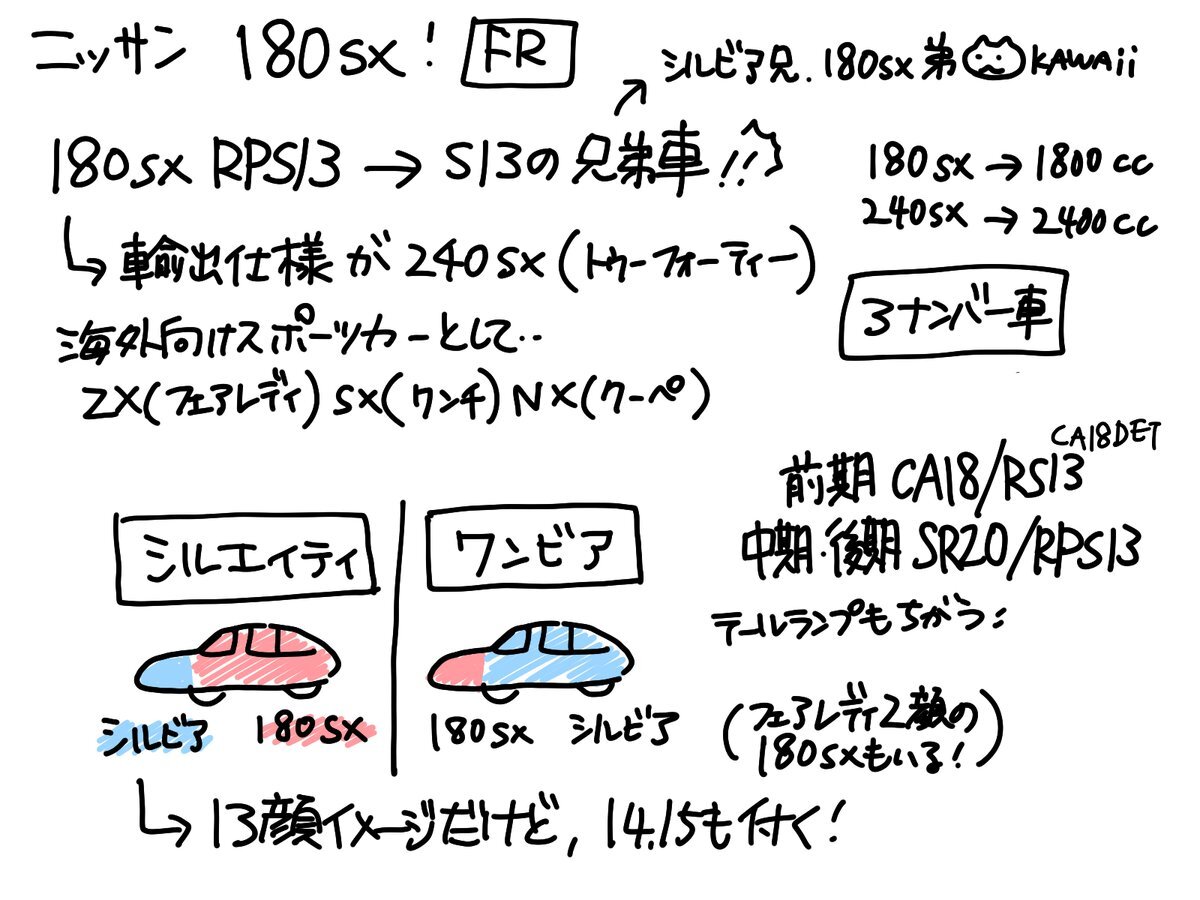 ニッサン 180sx! FR
シルビア兄.180sx弟 KAWAii
180sx RPS13 → S13の兄弟車!!
180sx → 1800cc
240sx → 2400cc
輸出仕様が240sx(トゥーフォーティー)
3ナンバー車
海外向けスポーツカーとして‥
ZX(フェアレディ) SX(ワンチ) NX(クーペ)
CA18DET
前期 CA18/RS13
中期・後期 SR20/RPS13
テールランプもちがう:
(フェアレディZ顔の
180sxもいる!)
シルエイティ
シルビア 180sx
ワンビア
180sx シルビア
→13顔イメージだけど, 14.15も付く!